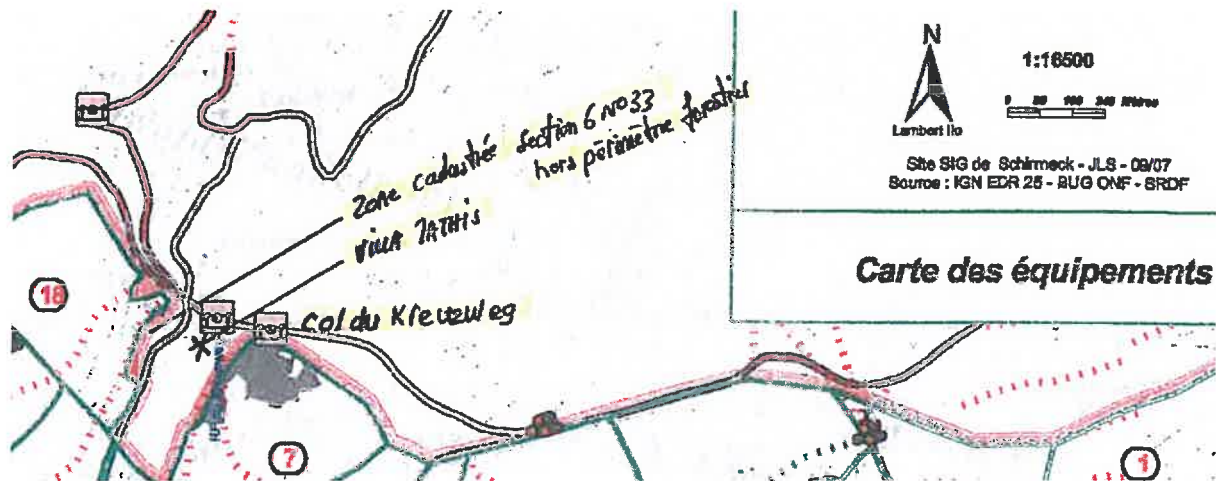 N
1:16500
Lambert IIo
Site SIG de Schirmeck - JLS - 09/07
Source : IGN EDR 25 - BUG ONF - SRDF
Carte des équipements
Zone cadastrée Section 6 N° 33
hors périmètre forestier
Villa
Col du Kreuzweg
18
7
1